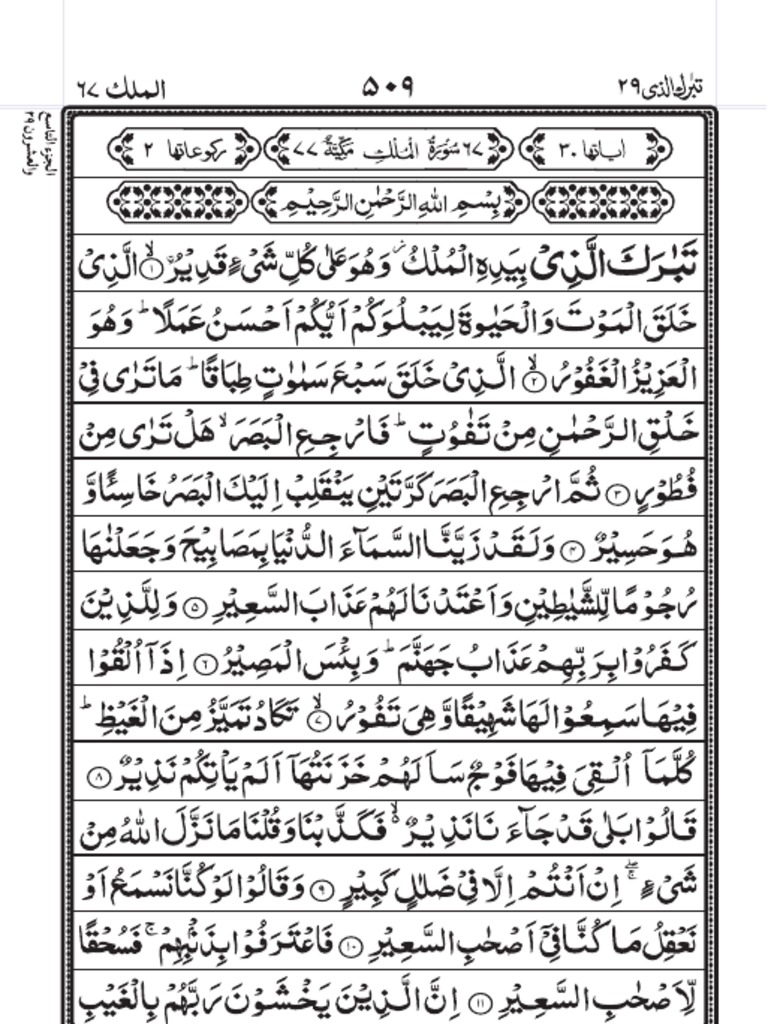 تبٰرك الذی ۲۹
۵۰۹
الملك ۶۷
الجزء التاسع
والعشرون ۲۹
اٰیاتها ۳۰
۶۷ سُوْرَةُ الْمُلْكِ مَكِّيَّةٌ ۷۷
رکوعاتها ۲
بِسْمِ اللهِ الرَّحْمٰنِ الرَّحِيْمِ
تَبٰرَكَ الَّذِیْ بِيَدِهِ الْمُلْكُ ز وَهُوَ عَلٰى كُلِّ شَیْءٍ قَدِيْرُۨ ۙ﴿۱﴾ الَّذِیْ
خَلَقَ الْمَوْتَ وَالْحَيٰوةَ لِيَبْلُوَكُمْ اَيُّكُمْ اَحْسَنُ عَمَلًا ؕ وَهُوَ
الْعَزِيْزُ الْغَفُوْرُ ۙ﴿۲﴾ الَّذِیْ خَلَقَ سَبْعَ سَمٰوٰتٍ طِبَاقًا ؕ مَا تَرٰى فِیْ
خَلْقِ الرَّحْمٰنِ مِنْ تَفٰوُتٍ ؕ فَارْجِعِ الْبَصَرَ ۙ هَلْ تَرٰى مِنْ
فُطُوْرٍ ﴿۳﴾ ثُمَّ ارْجِعِ الْبَصَرَ كَرَّتَيْنِ يَنْقَلِبْ اِلَيْكَ الْبَصَرُ خَاسِئًا وَّ
هُوَ حَسِيْرٌ ﴿۴﴾ وَلَقَدْ زَيَّنَّا السَّمَآءَ الدُّنْيَا بِمَصَابِيْحَ وَجَعَلْنٰهَا
رُجُوْمًا لِّلشَّيٰطِيْنِ وَاَعْتَدْنَا لَهُمْ عَذَابَ السَّعِيْرِ ﴿۵﴾ وَلِلَّذِيْنَ
كَفَرُوْا بِرَبِّهِمْ عَذَابُ جَهَنَّمَ ؕ وَبِئْسَ الْمَصِيْرُ ﴿۶﴾ اِذَاۤ اُلْقُوْا
فِيْهَا سَمِعُوْا لَهَا شَهِيْقًا وَّهِیَ تَفُوْرُ ۙ﴿۷﴾ تَكَادُ تَمَيَّزُ مِنَ الْغَيْظِ ؕ
كُلَّمَاۤ اُلْقِیَ فِيْهَا فَوْجٌ سَاَلَهُمْ خَزَنَتُهَاۤ اَلَمْ يَاْتِكُمْ نَذِيْرٌ ﴿۸﴾
قَالُوْا بَلٰى قَدْ جَآءَنَا نَذِيْرٌ ۙ۬ فَكَذَّبْنَا وَقُلْنَا مَا نَزَّلَ اللهُ مِنْ
شَیْءٍ ۖۚ اِنْ اَنْتُمْ اِلَّا فِیْ ضَلٰلٍ كَبِيْرٍ ﴿۹﴾ وَقَالُوْا لَوْ كُنَّا نَسْمَعُ اَوْ
نَعْقِلُ مَا كُنَّا فِیْۤ اَصْحٰبِ السَّعِيْرِ ﴿۱۰﴾ فَاعْتَرَفُوْا بِذَنْۢبِهِمْ ۚ فَسُحْقًا
لِّاَصْحٰبِ السَّعِيْرِ ﴿۱۱﴾ اِنَّ الَّذِيْنَ يَخْشَوْنَ رَبَّهُمْ بِالْغَيْبِ